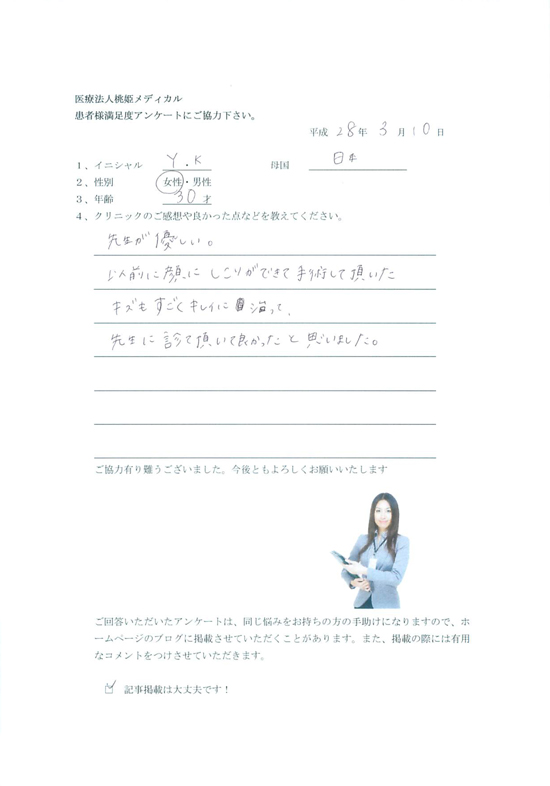 医療法人桃姫メディカル
患者様満足度アンケートにご協力下さい。
平成 28年 3 月 10 日
1、イニシャル Y.K 母国 日本
2、性別 女性・男性
3、年齢 30才
4、クリニックのご感想や良かった点などを教えてください。
先生が優しい。
以前に顔にしこりができて手術して頂いた
キズもすごくキレイに治って、
先生に診て頂いて良かったと思いました。
ご協力有り難うございました。今後ともよろしくお願いいたします
ご回答いただいたアンケートは、同じ悩みをお持ちの方の手助けになりますので、ホ
ームページのブログに掲載させていただくことがあります。また、掲載の際には有用
なコメントをつけさせていただきます。
記事掲載は大丈夫です！